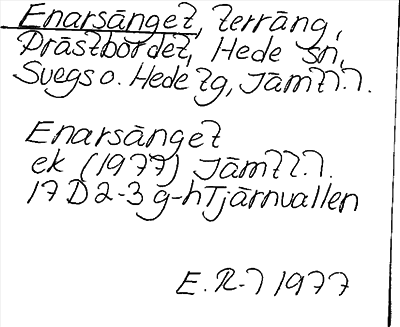 Enarsänget, terräng,
Prästbordet, Hede sn,
Svegs o. Hede tg, Jämtl.l.
Enarsänget
ek (1977) Jämtl.l.
17 D 2-3 g-h Tjärnvallen
E. R-l 1977